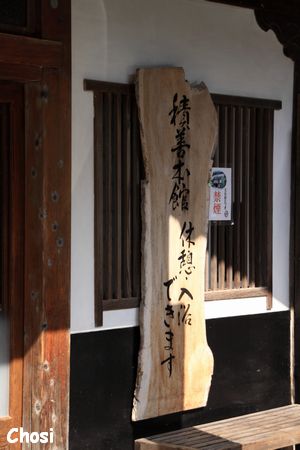 積善本館 休憩・入浴
できます
禁煙
Chosi